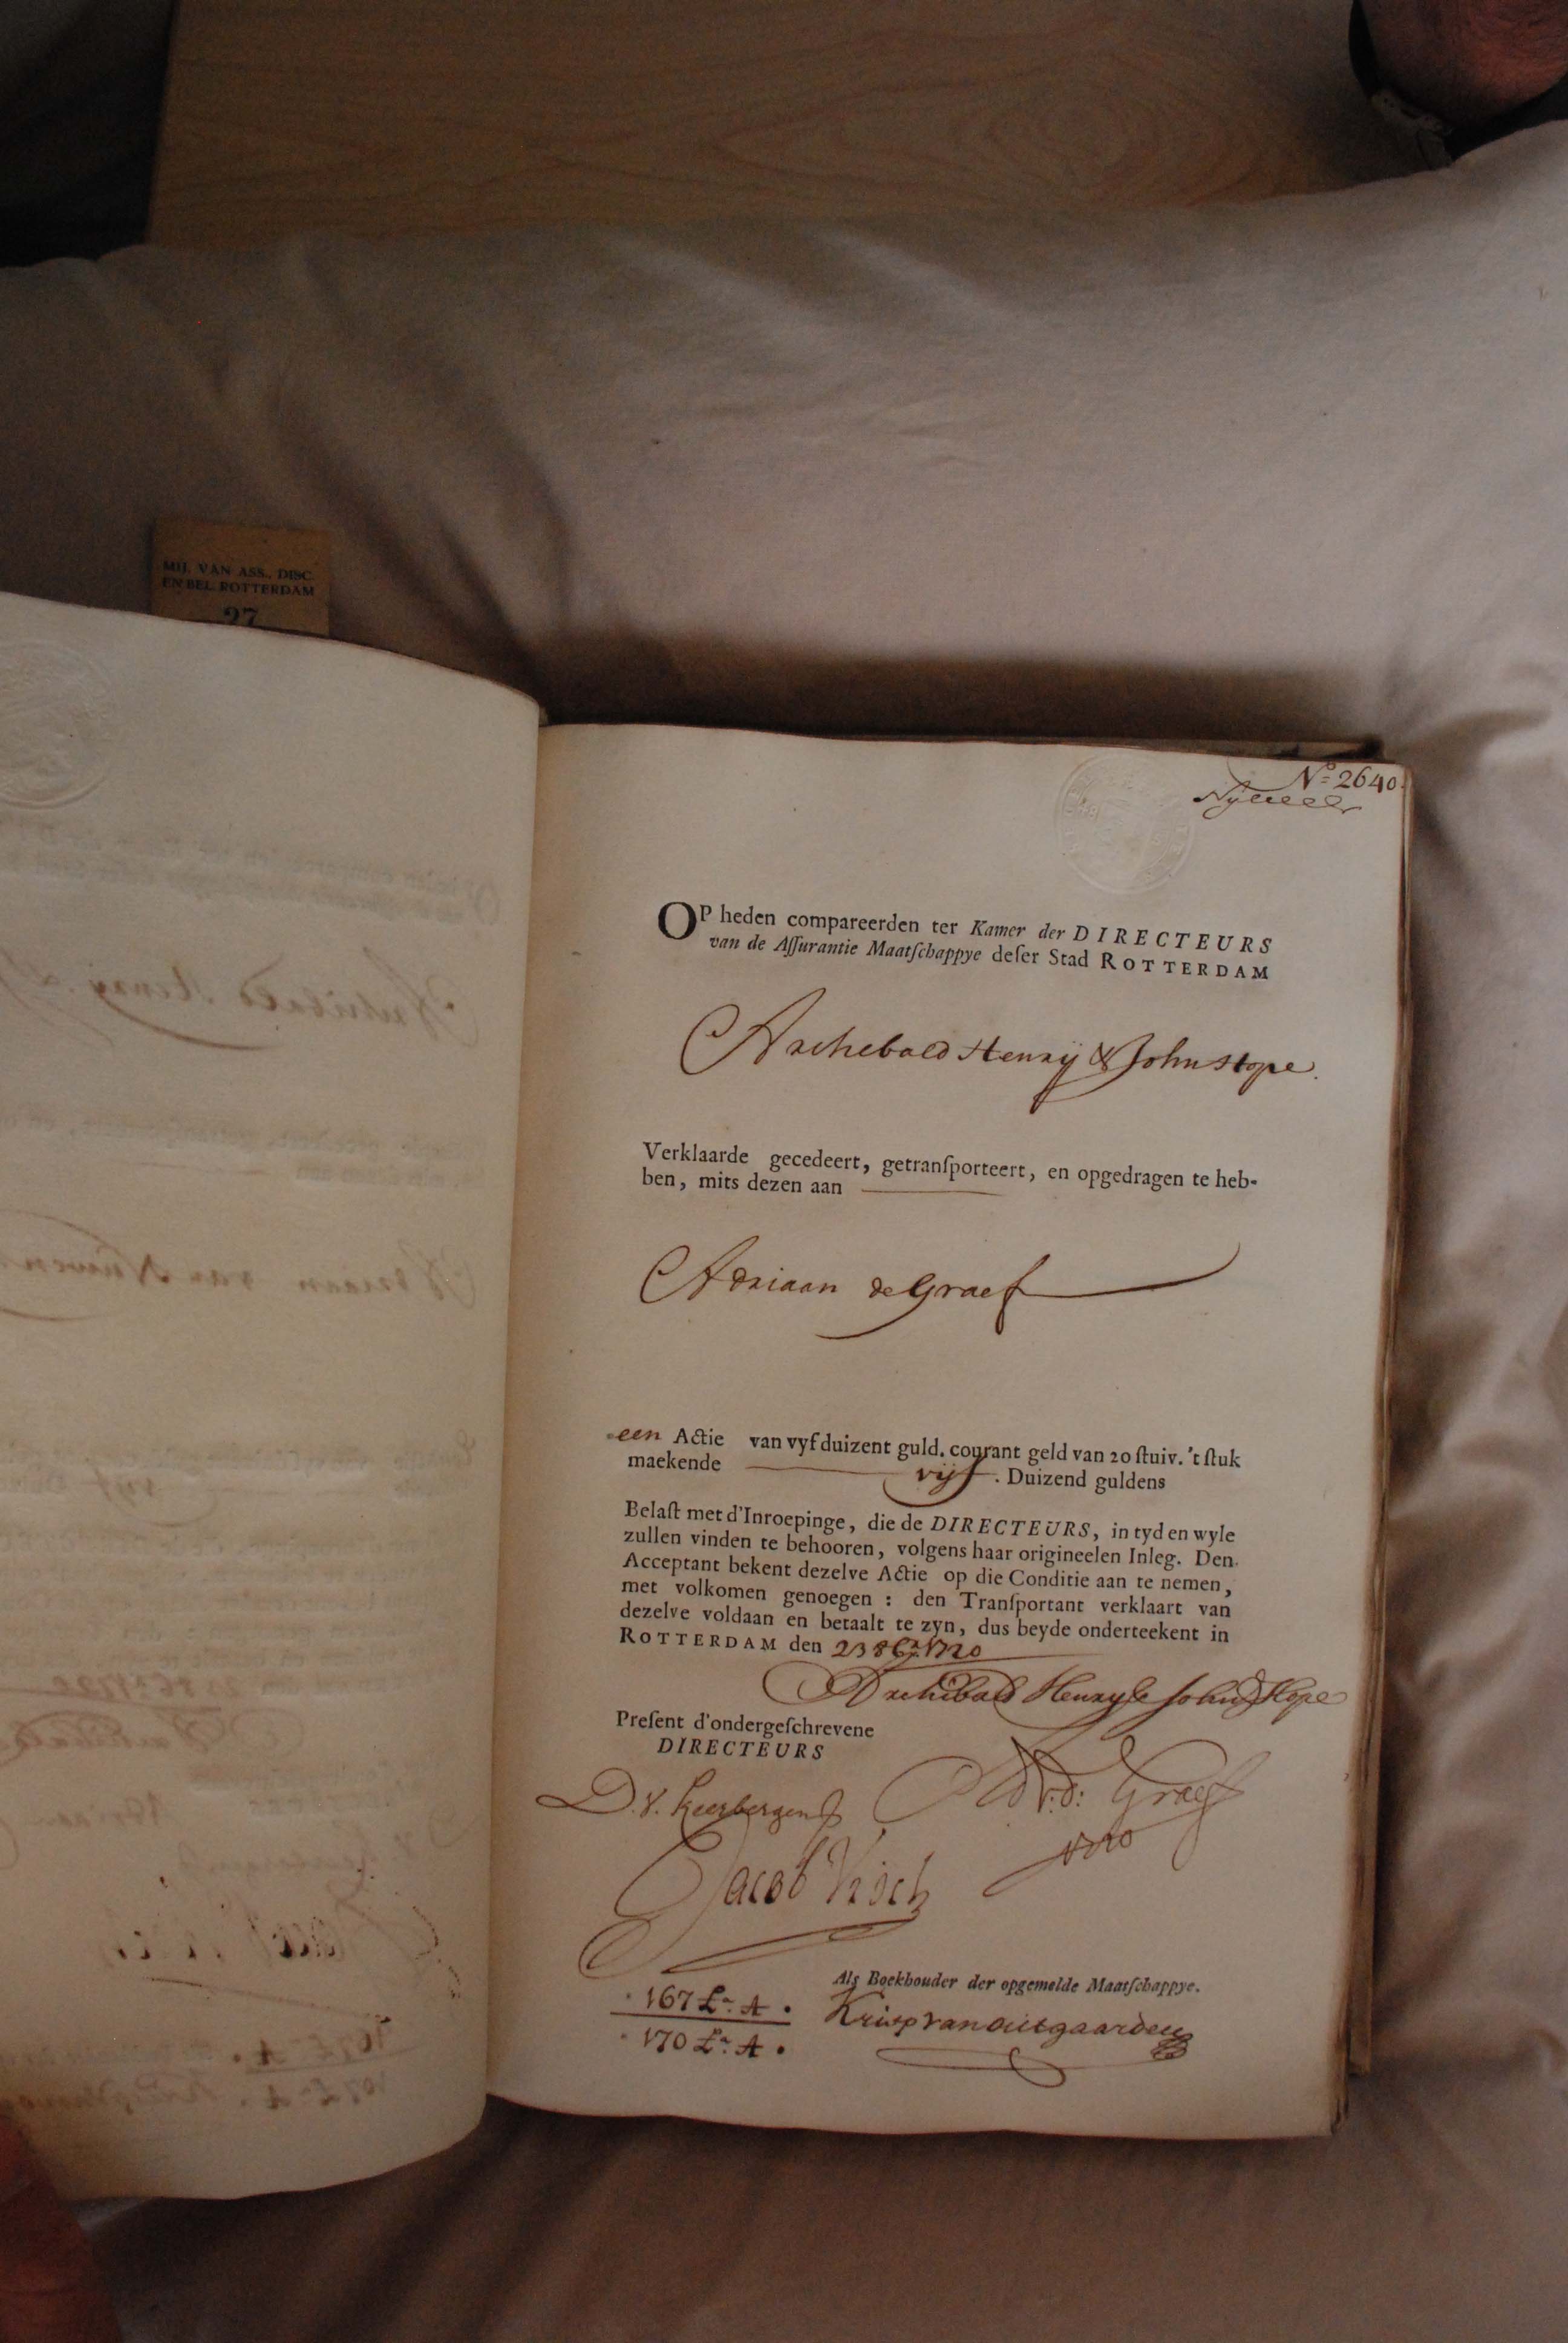 MIJ. VAN ASS., DISC.
EN BEL. ROTTERDAM
27
No 2640.
OP heden compareerden ter Kamer der DIRECTEURS
van de Aſſurantie Maatſchappye deſer Stad ROTTERDAM
Archebald Henry & John Hope.
Verklaarde gecedeert, getranſporteert, en opgedragen te heb-
ben, mits dezen aan
Adriaan de Graef
een Actie van vyf duizent guld. courant geld van 20 ſtuiv. 't ſtuk
maekende vijf. Duizend guldens
Belaſt met d'Inroepinge, die de DIRECTEURS, in tyd en wyle
zullen vinden te behooren, volgens haar origineelen Inleg. Den
Acceptant bekent dezelve Actie op die Conditie aan te nemen,
met volkomen genoegen : den Tranſportant verklaart van
dezelve voldaan en betaalt te zyn, dus beyde onderteekent in
ROTTERDAM den 23 8br. 1720
Archibald Henry & John Hope
Preſent d'ondergeſchrevene
DIRECTEURS
D. V. Keerbergen
Adr. d: Graef
1720
Jacob Visch
Als Boekhouder der opgemelde Maatſchappye.
167 La. A.
170 La. A.